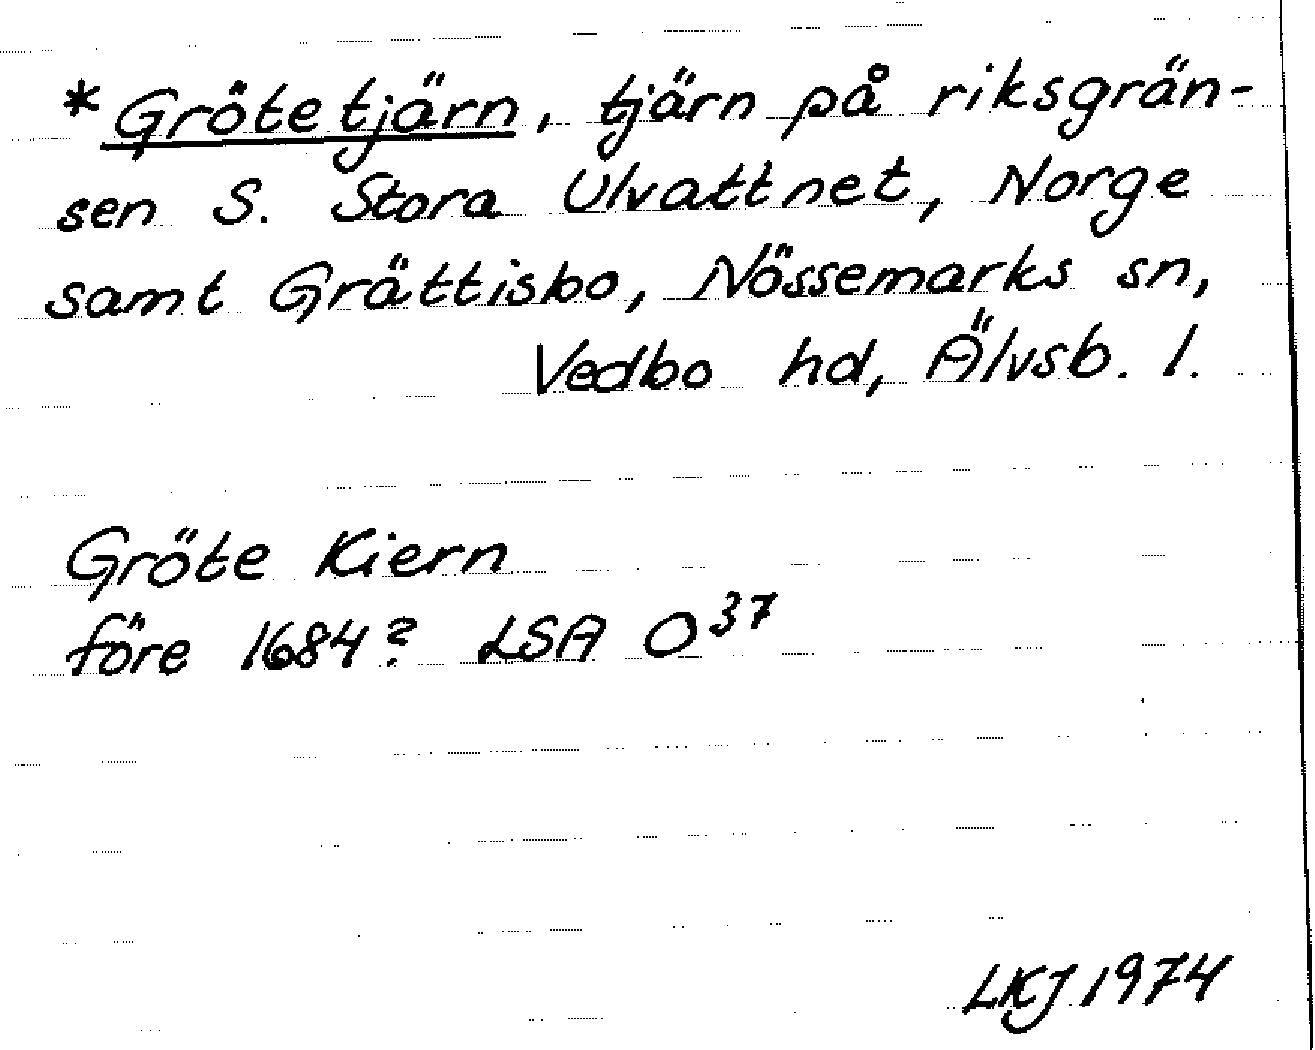 *Grötetjärn, tjärn på riksgrän-
sen S. Stora Ulvattnet, Norge
samt Grättisbo, Nössemarks sn,
Vedbo hd, Älvsb. l.
Gröte Kiern
före 1684? LSA O37
LKJ 1974